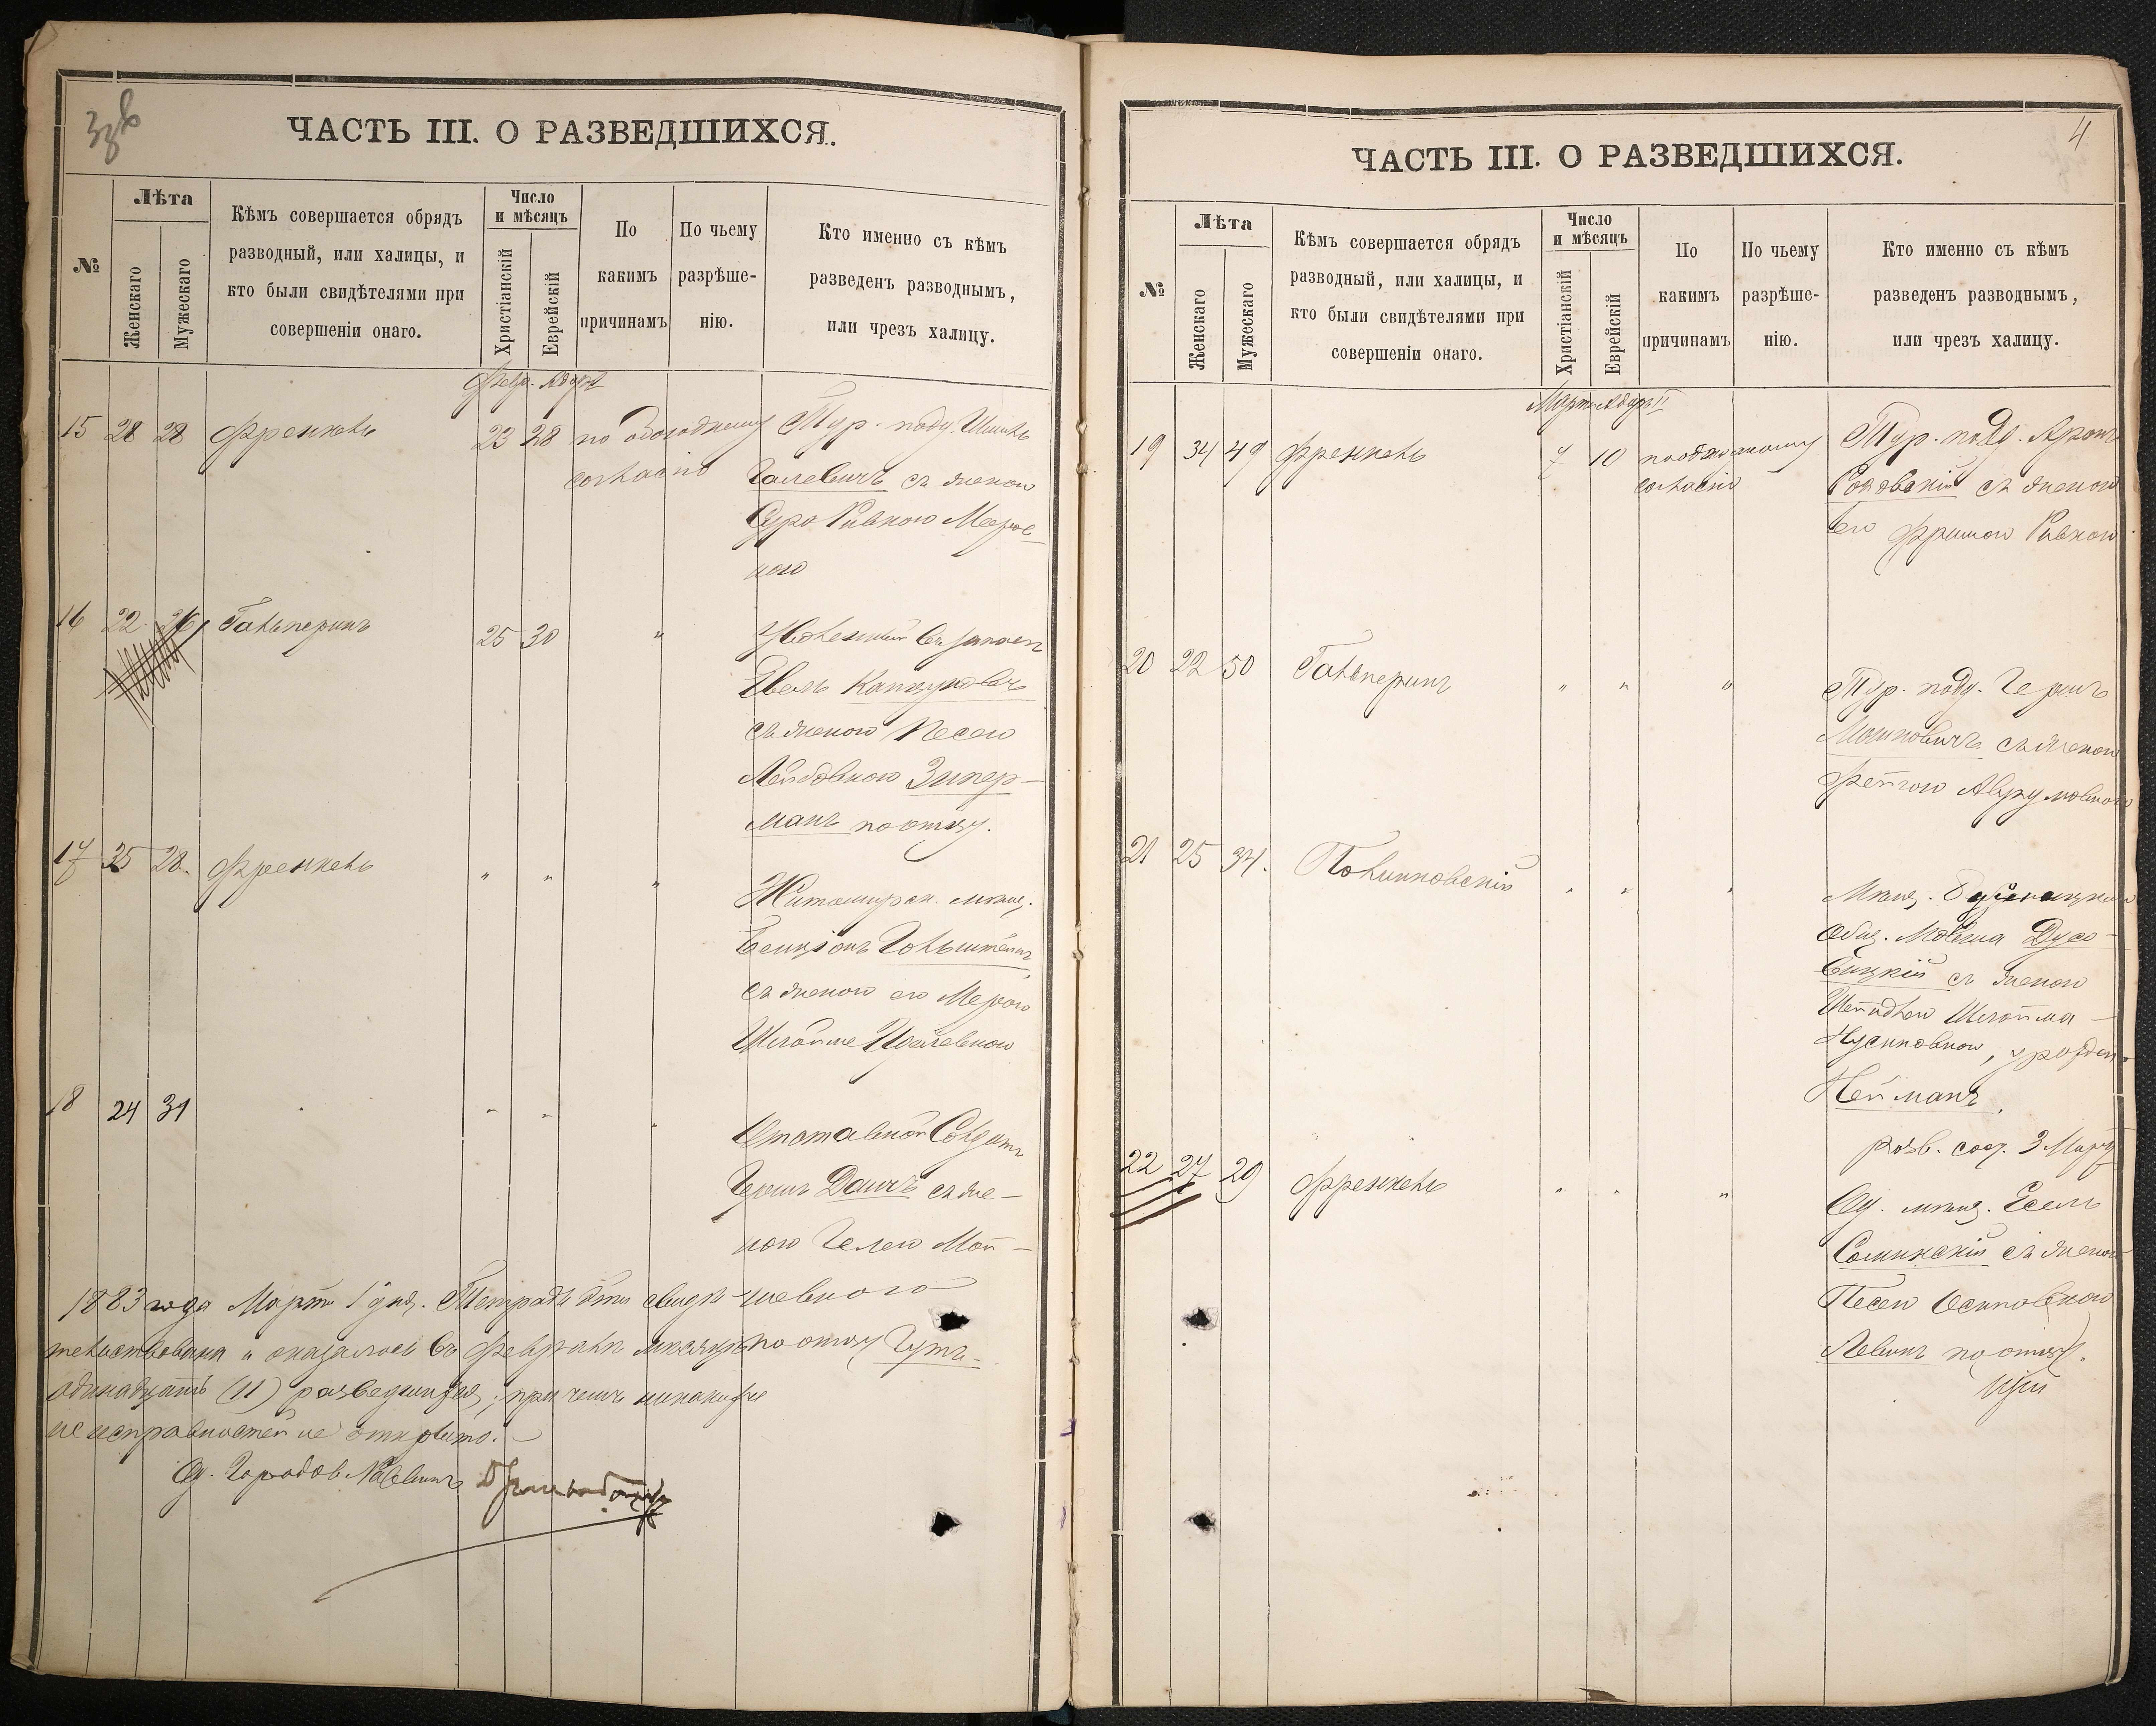 ЧАСТЬ III. О РАЗВЕДШИХСЯ.
№
Лѣта
Женскаго
Мужескаго
Кѣмъ совершается обрядъ
разводный, или халицы, и
кто были свидѣтелями при
совершеніи онаго.
Число
и мѣсяцъ
Христіанскій
Еврейскій
По
какимъ
причинамъ
По чьему
разрѣше-
нію.
Кто именно съ кѣмъ
разведенъ разводнымъ,
или чрезъ халицу.
Февр. Адаръ
15 28 28 Френкель 23 28 по обоюдному Тур. подд.
согласію Галевичъ съ женою
Сура Ривкою Меров-
ною
16 22 26 Гальперинъ 25 30 " Уволенный въ запасъ
съ женою Песею
Лейбовною Зипер-
манъ по отцу.
17 25 28. Френкель " " " Житомирск. мѣщ.
Бенціонъ Гольштейнъ
съ женою его Мерою
18 24 31 " " "
Отставной Солдатъ
Герш Данчъ съ же-
ною
шевною
по отцу Гутъ-
1883 года Марта 1 дня. Тетрадь эта свидѣ-
тельствована и оказалось въ Февралѣ мѣсяцѣ
одинадцать (11) разведшихся, при чемъ никакихъ
неисправностей не открыто.
Од. Городов. Раввинъ
4
ЧАСТЬ III. О РАЗВЕДШИХСЯ.
№
Лѣта
Женскаго
Мужескаго
Кѣмъ совершается обрядъ
разводный, или халицы, и
кто были свидѣтелями при
совершеніи онаго.
Число
и мѣсяцъ
Христіанскій
Еврейскій
По
какимъ
причинамъ
По чьему
разрѣше-
нію.
Кто именно съ кѣмъ
разведенъ разводнымъ,
или чрезъ халицу.
Мартъ Адаръ II
19 34 49 Френкель 7 10 по обоюдному Тур. подд. Аронъ
согласію съ женою
его Фримою Ривкою
20 22 50 Гальперинъ " " " Тур. подд. Гершъ
Мошковичъ съ женою
Фейгою Аврумовною
21 25 34. Полинковскій " " " Мѣщ.
Общ. Мовша Дусо-
вицкій съ женою
Шейндлею
Нусиновною, урожден.
Нейманъ,
разв. сост. 3 Марта
22 27 29 Френкель " " " Од. мѣщ. Есель
Соминскій съ женою
Песею Осиповною
Левинъ по отцу.